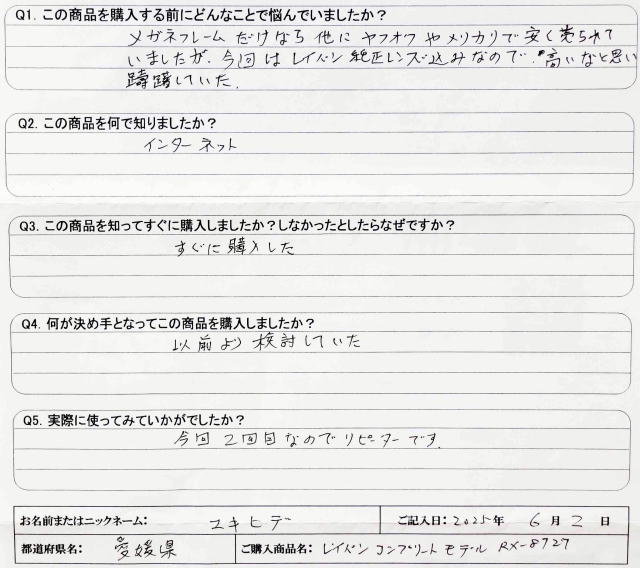 Q1. この商品を購入する前にどんなことで悩んでいましたか？
メガネフレームだけなら他にヤフオクやメルカリで安く売られて
いましたが、今回はレイバン純正レンズ込みなので、高いなと思い
躊躇していた。
Q2. この商品を何で知りましたか？
インターネット
Q3. この商品を知ってすぐに購入しましたか？しなかったとしたらなぜですか？
すぐに購入した
Q4. 何が決め手となってこの商品を購入しましたか？
以前より検討していた
Q5. 実際に使ってみていかがでしたか？
今回2回目なのでリピーターです。
お名前またはニックネーム： ユキヒデ ご記入日：2025年 6月2日
都道府県名： 愛媛県 ご購入商品名： レイバン コンプリートモデル RX-8727